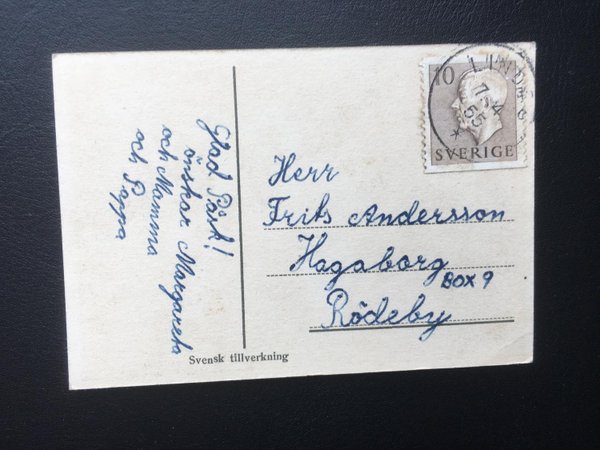 Glad Påsk!
önskar Margareta
och Mamma
och Pappa
10
SVERIGE
7-4
55
Herr
Frits Andersson
Hagaborg
BOX 9
Rödeby
Svensk tillverkning